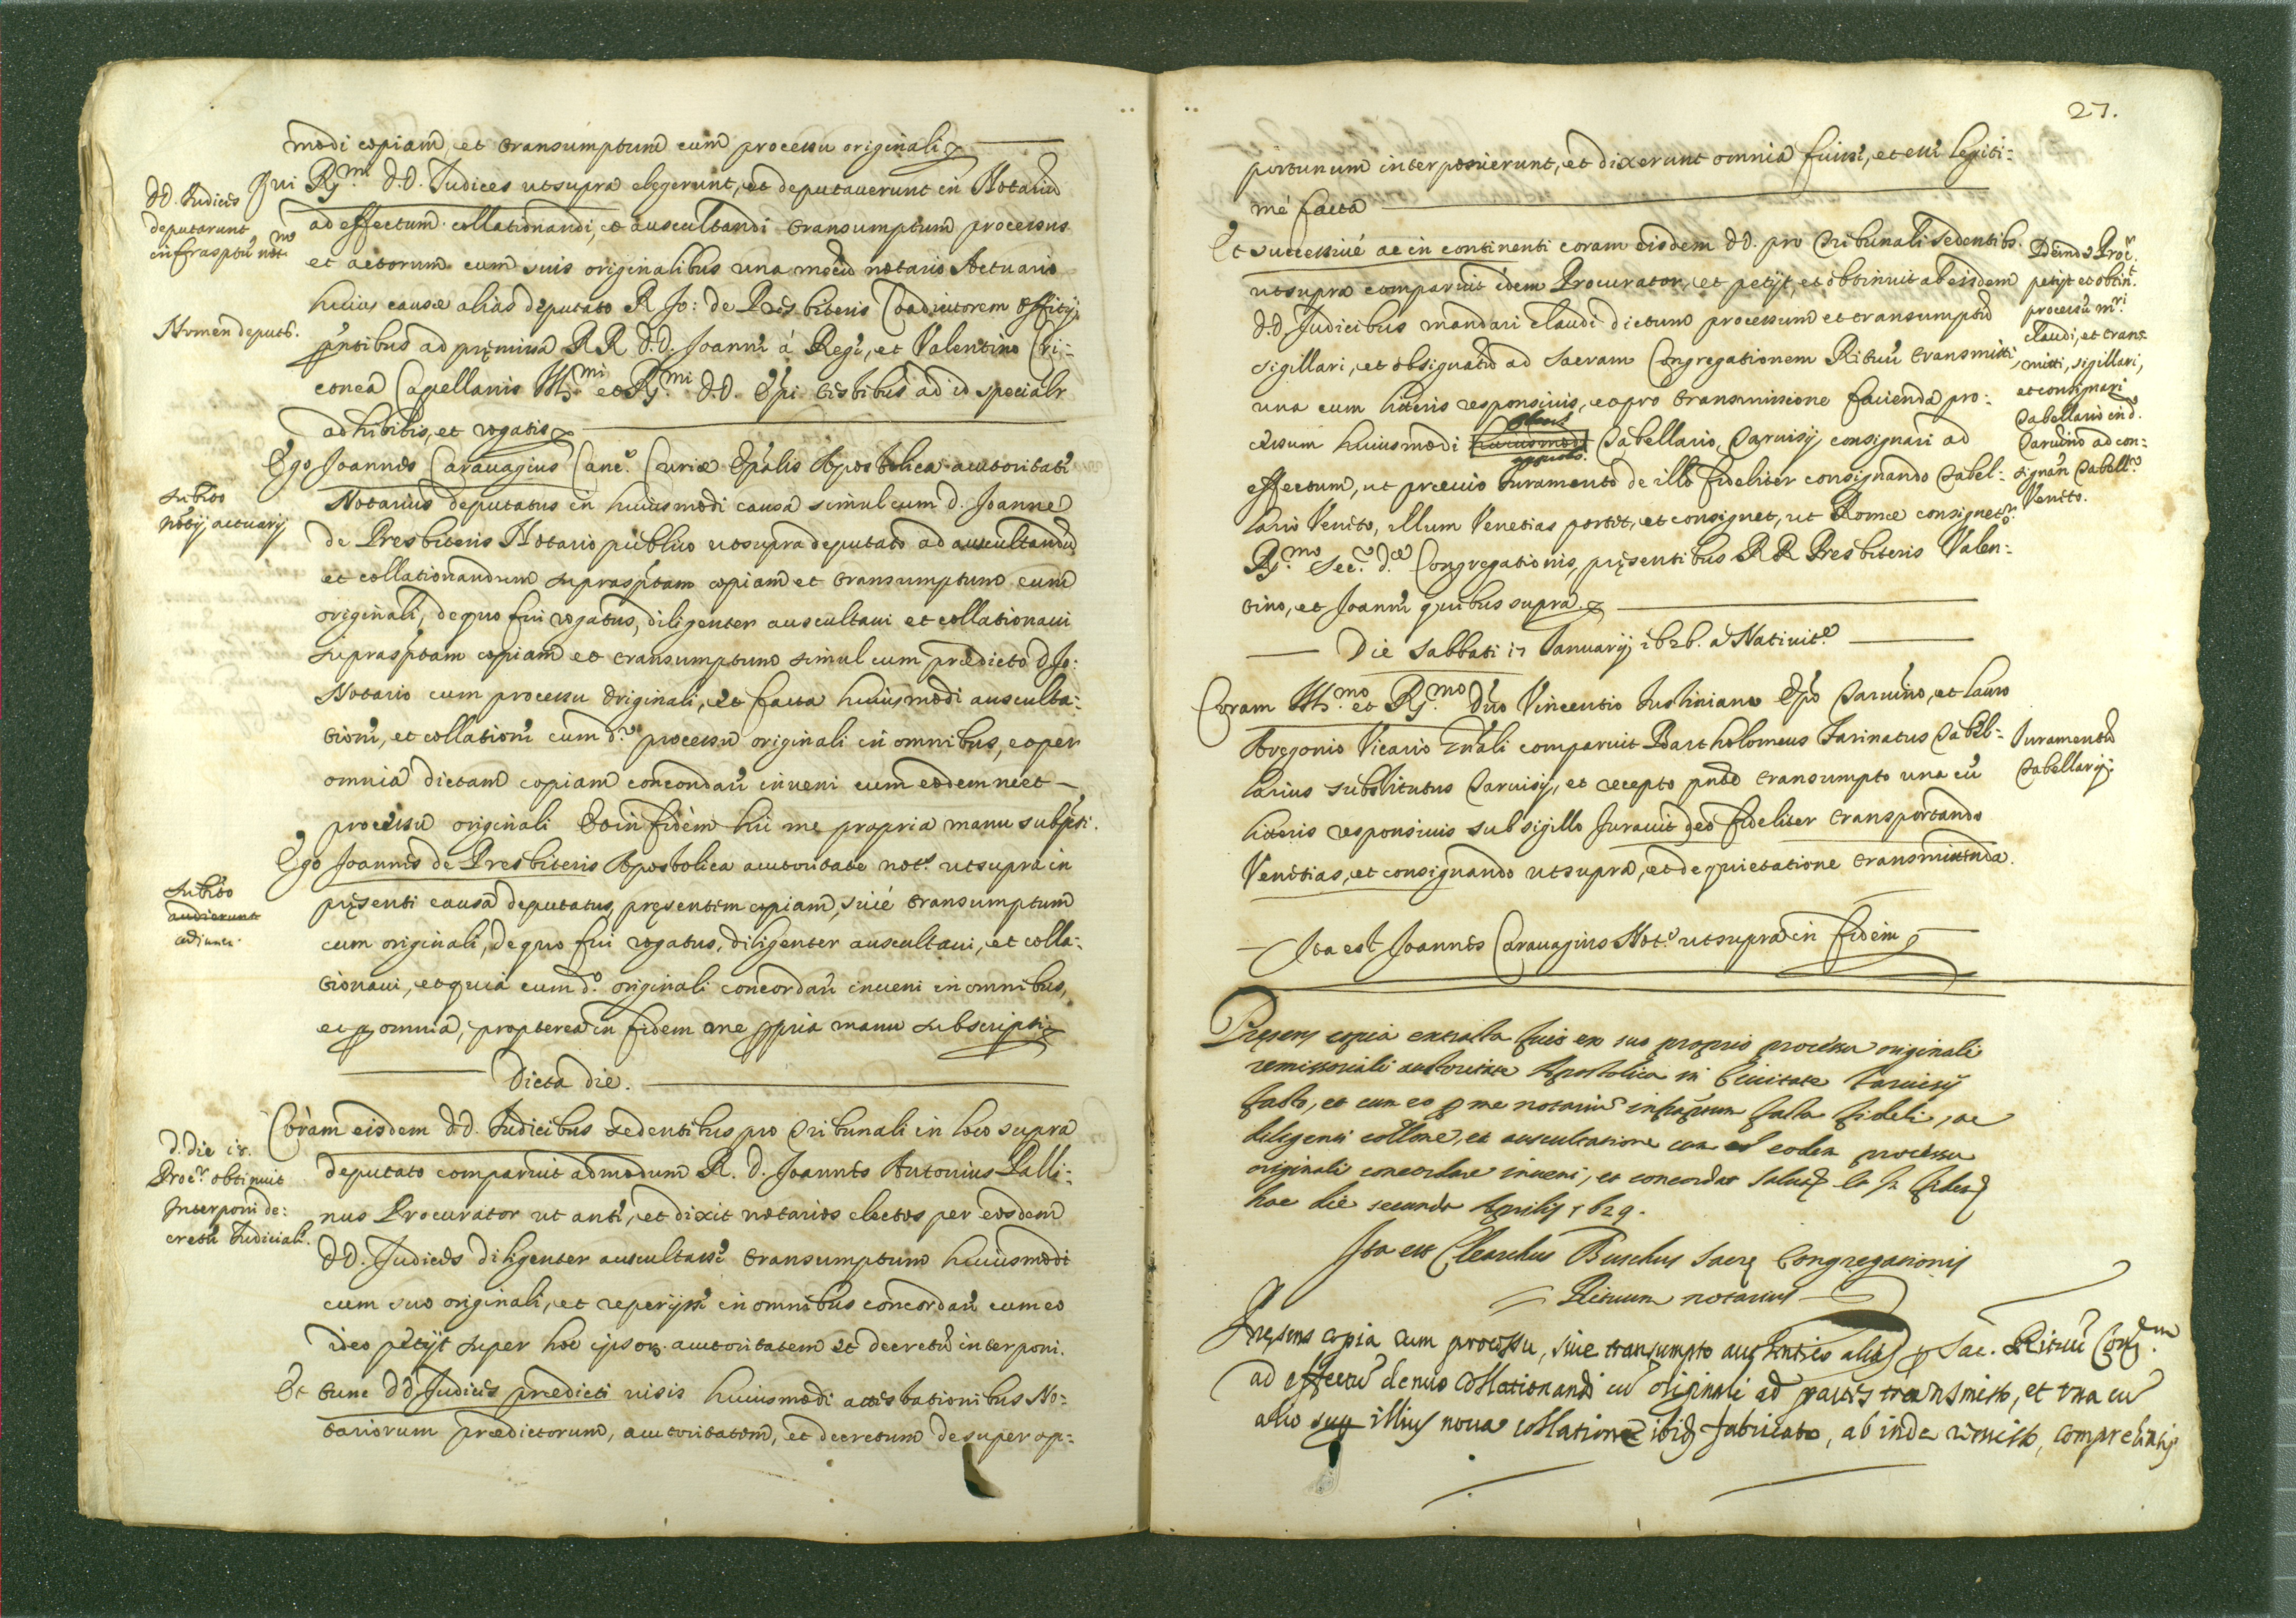 modi copiam, et transumptum cum processu originali
DD. Judices
deputarunt
infrasptũ not.m
Qui R.mi DD. Judices ut supra elegerunt, et deputaverunt in Notariũ
ad effectum collationandi, et auscultandi transumptum processus
et actorum cum suis originalibus una mecũ notario Actuario
huius causæ alias deputato R Jo: de Presbiteris Coadiutorem Offitij,
Nomen deputti.
pñtibus ad pręmissa RR. DD. Joanne à Rege, et Valentino Cri-
conea Capellanis Ill.mi et R.mi DD. Epi testibus ad id specialr
adhibitis, et rogatis
Ego Joannes Caravagius Canc.s Curiæ Epalis Apostolica autoritate
subtio
notij actuarij
Notarius deputatus in huiusmodi causa simul cum d. Joanne
de Presbiteris Notario publico ut supra deputato ad auscultandũ
et collationandum suprasptam copiam et transumptum cum
originali, de quo fui rogatus, diligenter auscultavi et collationavi
suprasptam copiam et transumptum simul cum prædicto D Jo:
Notario cum processu originali, et facta huiusmodi ausculta-
tione, et collatione cum d.o processu originali in omnibus, et per
omnia dictam copiam concordare inveni cum eodem
processu originali Et in fidem hic me propria manu subspsi.
Ego Joannes de Presbiteris Apostolica autoritate not.s ut supra in
subtio
audierunt
adiunct.
pręsenti causa deputatus, pręsentem copiam, sive transumptum
cum originali, de quo fui rogatus, diligenter auscultavi, et colla-
tionavi, et quia cum d.o originali concordare inveni in omnibus,
et p omnia, propterea in fidem me ppria manu subscripsi
Dicta die.
Coram eisdem DD. Judicibus sedentibus pro Tribunali in loco supra
d. die 15.
Procr. obtinuit
Interponi de-
cretũ Judiciale.
deputato comparuit admodum R. D. Joannes Antonius Palli-
nus Procurator ut ante, et dixit notarios electos per eosdem
DD. Judices diligenter auscultasse transumptum huiusmodi
cum suo originali, et reperijsse in omnibus concordare cum eo
ideo petijt super hoc ipsor. autoritatem et decretũ interponi.
Et tunc DD. Judices prædicti visis huiusmodi attestationibus No-
tariorum prædictorum, autoritatem, et decretum desuper op-
27.
portunum interposuerunt, et dixerunt omnia fuisse, et esse legiti-
mé facta
Et successivé ac in continenti coram eisdem DD. pro Tribunali sedentib.
ut supra comparuit idem Procurator, et petijt, et obtinuit ab eisdem
DD. Judicibus mandari claudi dictum processum et transumptũ
sigillari, et obsignatũ ad Sacram Congregationem Rituũ transmitti,
una cum literis responsivis, et pro transmissione facienda pro-
cessum huiusmodi huiusmodi Tabellario Tarvisij consignari ad
effectum, ut prævio Iuramento de illo fideliter consignando Tabel-
lario Veneto, illum Venetias portet, et consignet, ut Romæ consignetr.
R.mo Sec.o d.æ Congregationis, pręsentibus RR. Presbiteris Valen-
tino, et Joanne quibus supra
Deinde Procr.
petijt et obtint.
processũ mri.
claudi, et trans-
mitti, sigillari,
et consignari
Tabellario in d.
Tarvisino ad con-
signan Tabell.o
Veneto.
Die Sabbati 17 Ianuarij 1626. a Nativite.
Coram Ill.mo et R.mo Dño Vincentio Iustiniano Epõ Tarvisino, et Lauro
Aregonio Vicario gñali comparuit Bartholomeus Farinatus Tabel-
larius substitutus Tarvisij, et recepto pñto transumpto una cũ
literis responsivis sub sigillo Iuravit de eo fideliter transportando
Venetias, et consignando ut supra, et de quietatione transmittenda.
Iuramentũ
Tabellarij.
Ita est Joannes Caravagius Not.s ut supra in fidem
Pręsens copia extracta fuit ex suo proprio processu originali
remissoriali autoritate Apostolica in Civitate Tarvisij
facto, et cum eo p me notariũ infrāptum facta fideli, ac
diligenti collone, et auscultatione cum eodem processu
originali concordare inveni, et concordat salvo
hac die secunda Aprilis 1629.
Ita est Clearchus Buschus Sacrę Congregationis
Rituum notarius
Pręsens copia cum processu, sive transumpto autentico alias p Sac. Rituũ Cong.m
ad effectũ denuo collationandi cũ originali ad partes transmisso, et una cũ
alio illius nova collatione ibid. fabricato, ab inde remisso, comprehensis